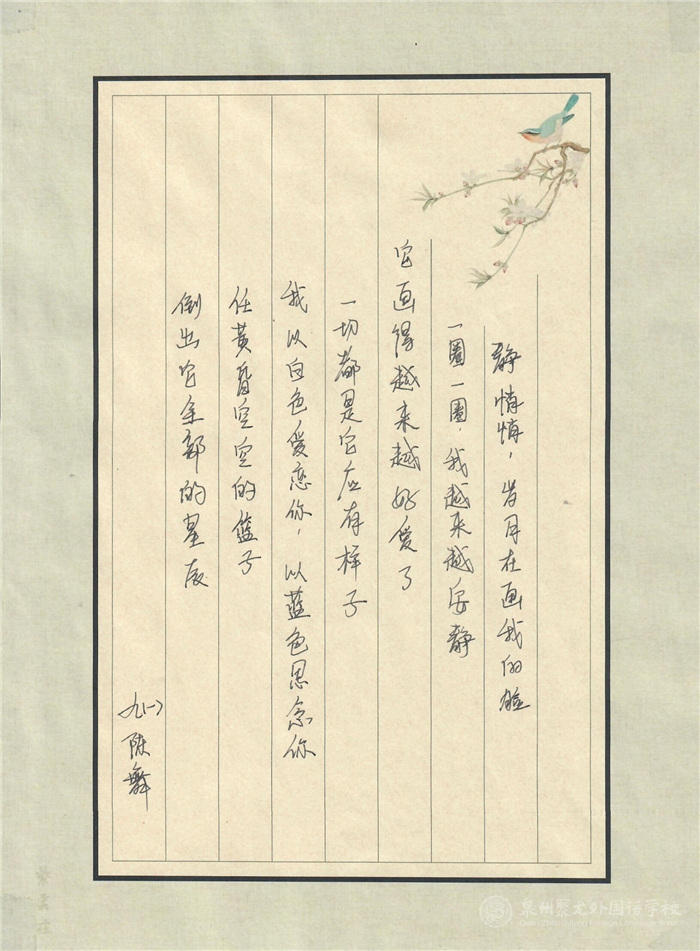 静悄悄，岁月在画我的脸
一圈一圈，我越来越安静
它画得越来越好爱了
一切都是它应有样子
我以白色爱恋你，以蓝色思念你
任黄昏空空的篮子
倒出它全部的星辰
九(一) 陈舞
泉州聚龙外国语学校